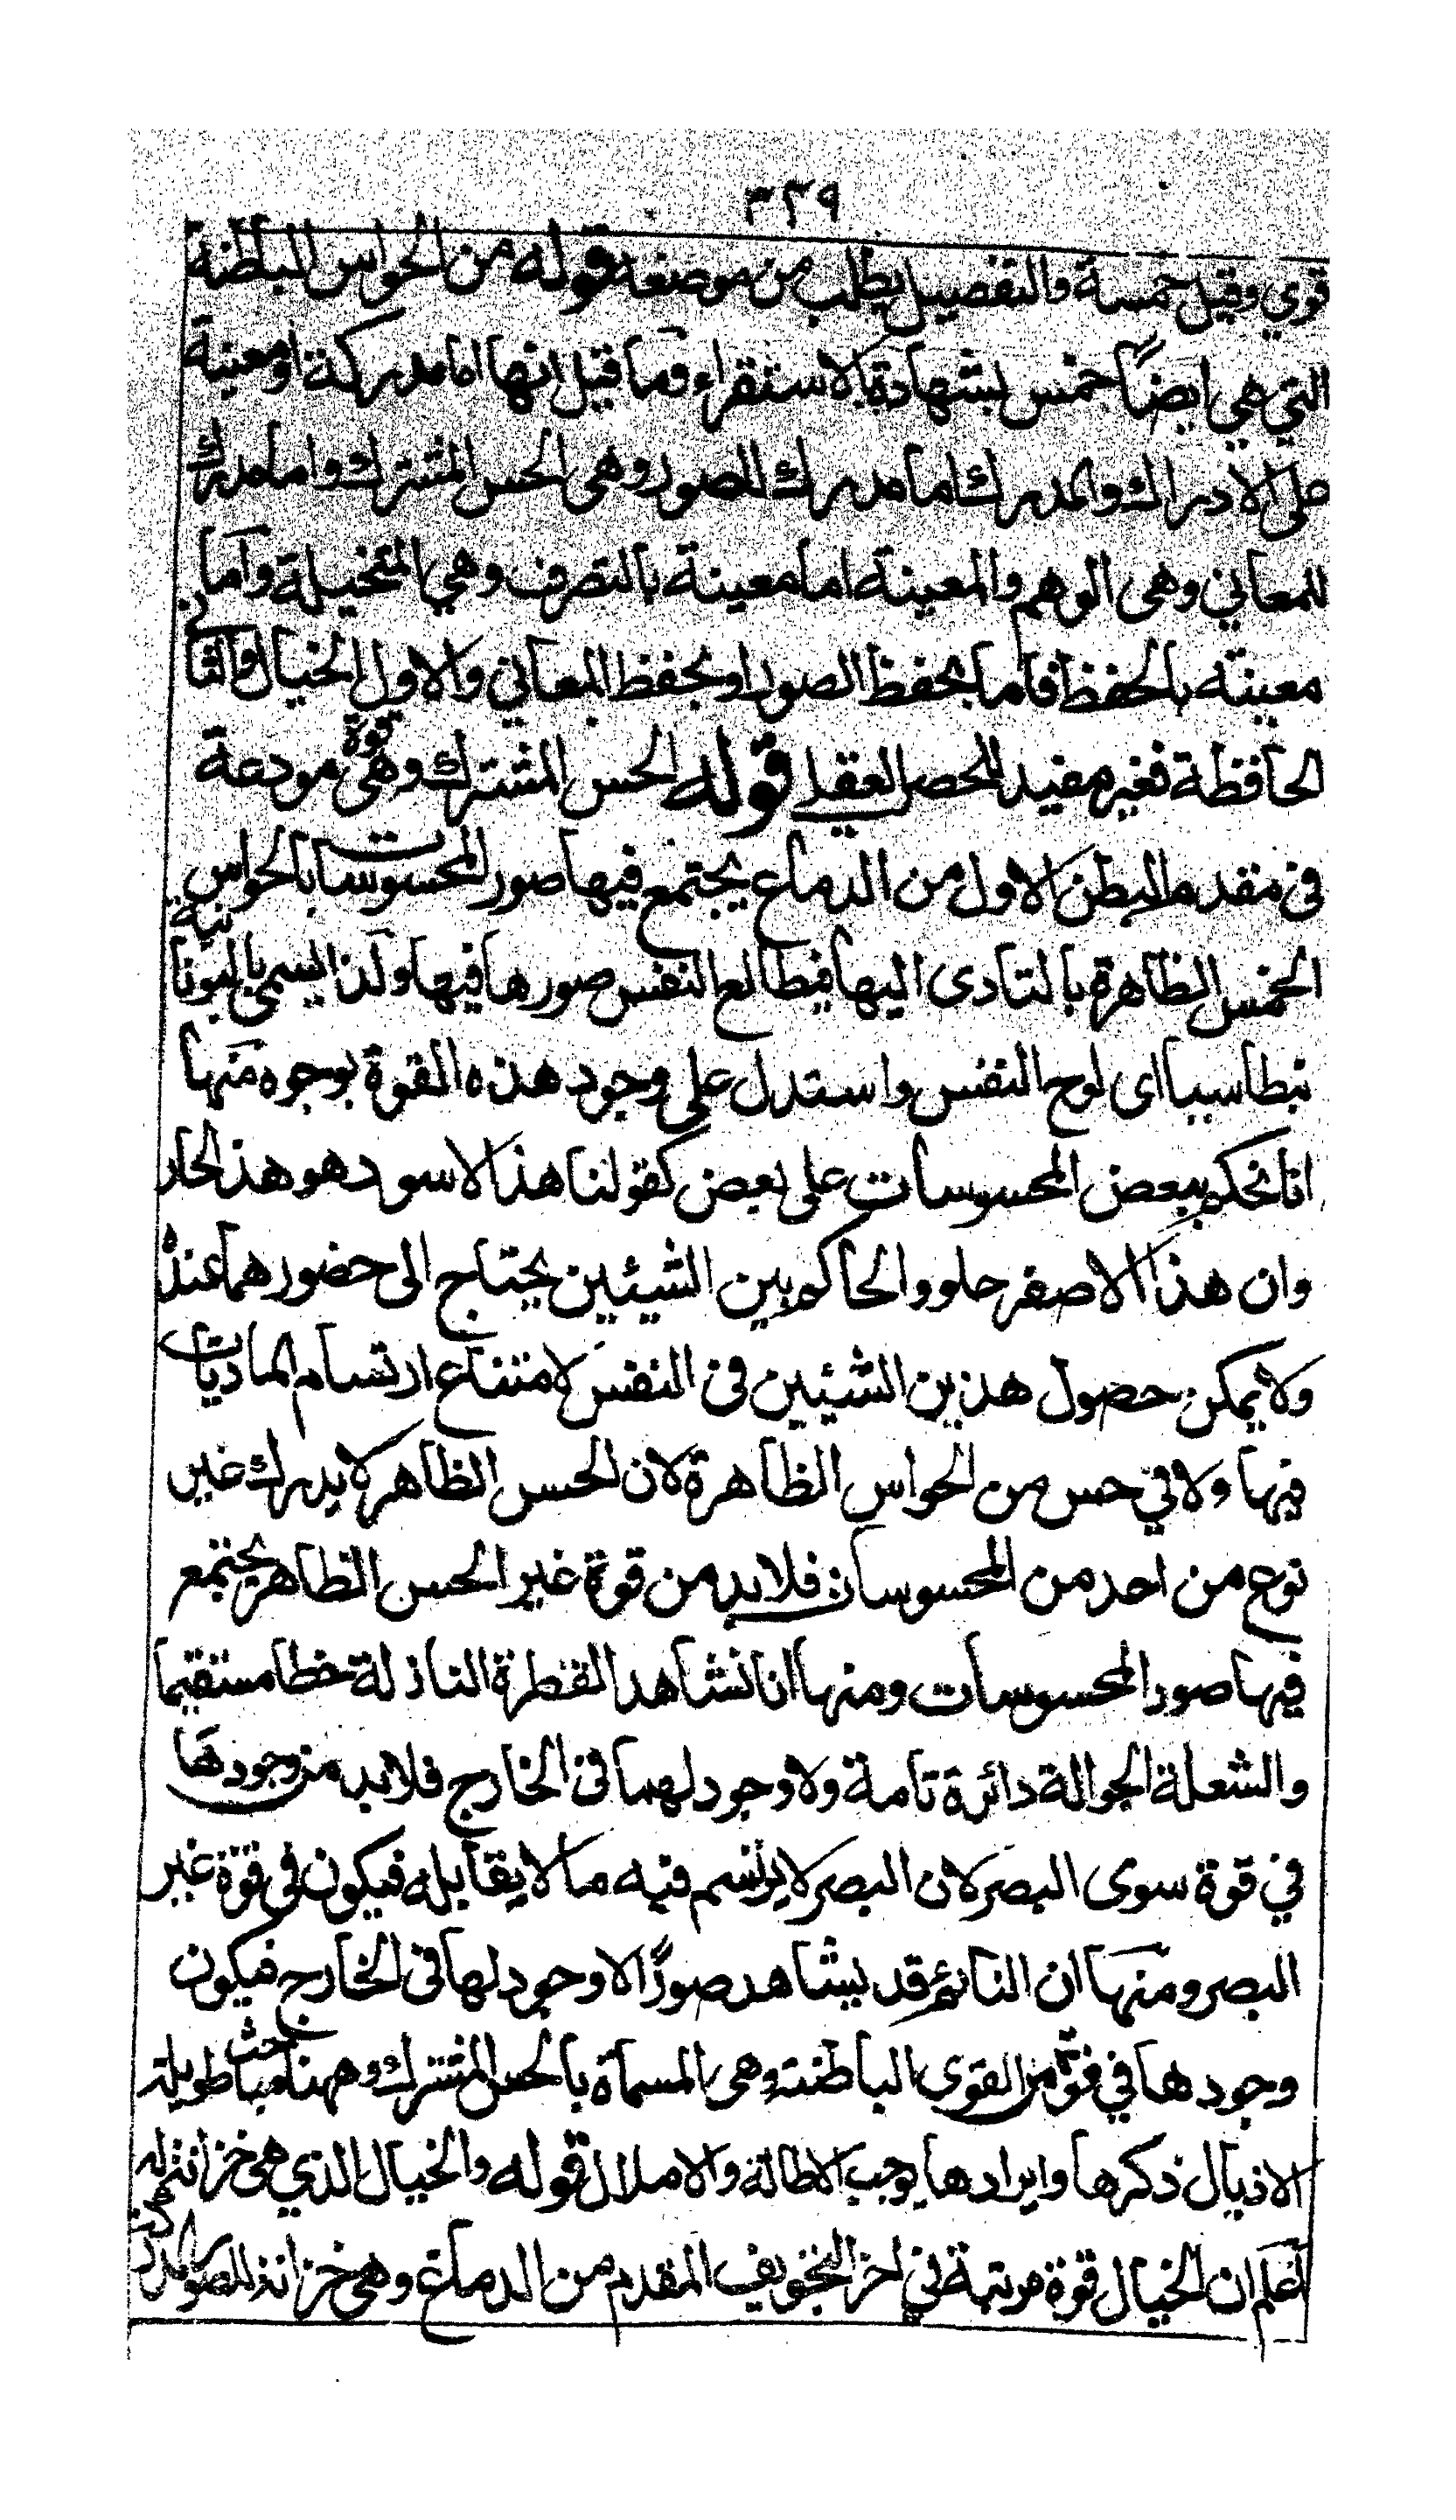 ٣٢٩
قوي وقيل خمسة والتفصيل يطلب من موضعه قوله من الحواس الباطنة
التي هي ايضاً خمس بشهادة الاستقراء وما قيل انها اما مدركة او معينة
على الادراك والمدرك اما مدرك للصور وهى الحس المشترك واما مدرك
للمعاني وهى الوهم والمعينة اما معينة بالتصرف وهي المتخيلة واما
معينة بالحفظ فاما بحفظ الصور او بحفظ المعاني والاول الخيال والثاني
الحافظة فغير مفيد للحصر العقلي قوله الحس المشترك وهى قوة مودعة
فى مقدم البطن الاول من الدماغ يجتمع فيها صور المحسوسات بالحواس
الخمس الظاهرة بالتادى اليها فيطالع النفس صورها فيها ولذا يسمى باليونانية
بنطاسيا اى لوح النفس واستدل على وجود هذه القوة بوجوه منها
انا نحكم ببعض المحسوسات على بعض كقولنا هذا الاسود هو هذا الحار
وان هذا الاصفر حلو والحاكم بين الشيئين يحتاج الى حضورهما عنده
ولا يمكن حصول هذين الشيئين فى النفس لامتناع ارتسام الماديات
فيها ولا في حس من الحواس الظاهرة لان الحس الظاهر لا يدرك غير
نوع من احد من المحسوسات فلا بد من قوة غير الحس الظاهر يجتمع
فيها صور المحسوسات ومنها انا نشاهد القطرة النازلة خطا مستقيما
والشعلة الجوالة دائرة تامة ولا وجود لهما فى الخارج فلا بد من وجودها
في قوة سوى البصر لان البصر لا يرتسم فيه ما لا يقابله فيكون فى قوة غير
البصر ومنها ان النائم قد يشاهد صورًا لا وجود لها فى الخارج فيكون
وجودها في قوة من القوى الباطنة وهى المسماة بالحس المشترك وههنا مباحث طويلة
الاذيال ذكرها وايرادها يوجب الاطالة والاملال قوله والخيال الذي هى خزانته له
اعلم ان الخيال قوة مرتبة في اخر التجويف المقدم من الدماغ وهى خزانة للصور